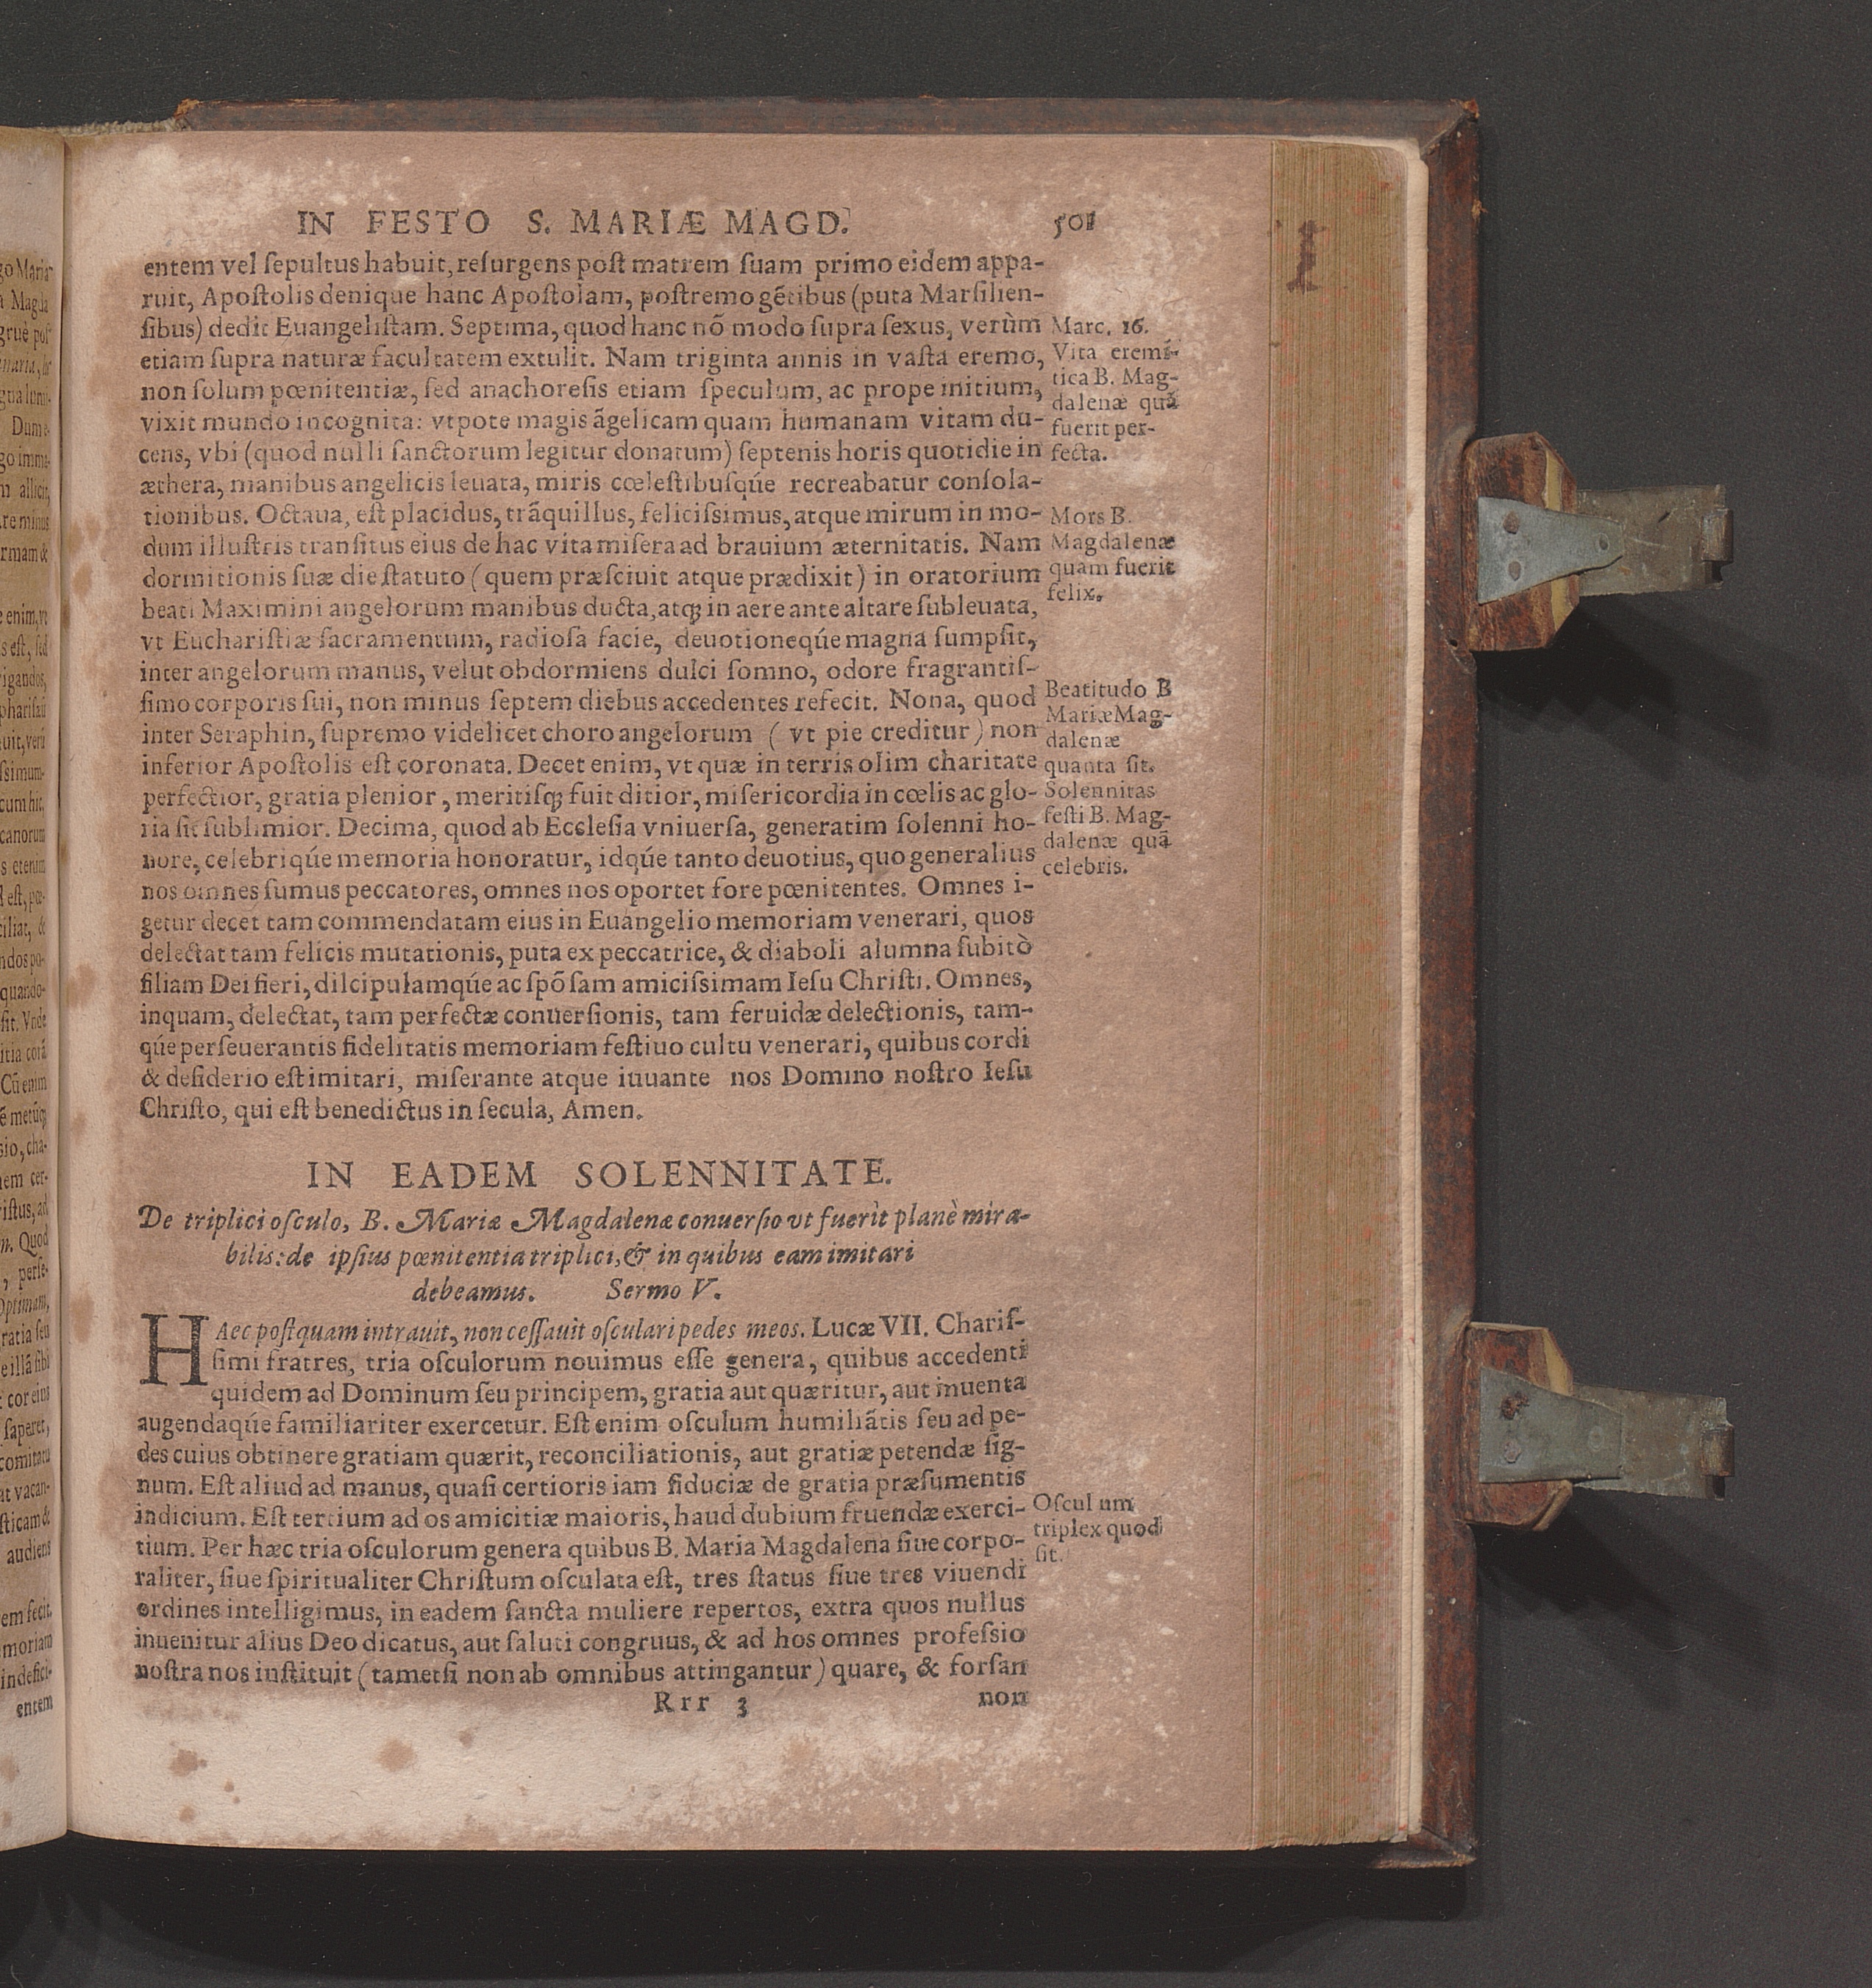 IN FESTO S. MARIÆ MAGD. 501
entem vel ſepultus habuit, reſurgens poſt matrem ſuam primo eidem appa-
ruit, Apoſtolis denique hanc Apoſtolam, poſtremo gẽtibus (puta Marſilien-
ſibus) dedit Euangeliſtam. Septima, quod hanc nõ modo ſupra ſexus, verùm
etiam ſupra naturæ facultatem extulit. Nam triginta annis in vaſta eremo,
non ſolum pœnitentiæ, ſed anachoreſis etiam ſpeculum, ac prope initium,
vixit mundo incognita: vtpote magis ãgelicam quam humanam vitam du-
cens, vbi (quod nulli ſanctorum legitur donatum) ſeptenis horis quotidie in
æthera, manibus angelicis leuata, miris cœleſtibuſqúe recreabatur conſola-
tionibus. Octaua, eſt placidus, trãquillus, feliciſsimus, atque mirum in mo-
dum illuſtris tranſitus eius de hac vita miſera ad brauium æternitatis. Nam
dormitionis ſuæ die ſtatuto (quem præſciuit atque prædixit) in oratorium
beati Maximini angelorum manibus ducta, atq; in aere ante altare ſubleuata,
vt Euchariſtiæ ſacramentum, radioſa facie, deuotioneqúe magna ſumpſit,
inter angelorum manus, velut obdormiens dulci ſomno, odore fragrantiſ-
ſimo corporis ſui, non minus ſeptem diebus accedentes refecit. Nona, quod
inter Seraphin, ſupremo videlicet choro angelorum (vt pie creditur) non
inferior Apoſtolis eſt coronata. Decet enim, vt quæ in terris olim charitate
perfectior, gratia plenior, meritiſq; fuit ditior, miſericordia in cœlis ac glo-
ria ſit ſublimior. Decima, quod ab Eccleſia vniuerſa, generatim ſolenni ho-
nore, celebriqúe memoria honoratur, idqúe tanto deuotius, quo generalius
nos omnes ſumus peccatores, omnes nos oportet fore pœnitentes. Omnes i-
getur decet tam commendatam eius in Euangelio memoriam venerari, quos
delectat tam felicis mutationis, puta ex peccatrice, & diaboli alumna ſubitò
filiam Dei fieri, dilcipulamqúe ac ſpõſam amiciſsimam Ieſu Chriſti. Omnes,
inquam, delectat, tam perfectæ conuerſionis, tam feruidæ delectionis, tam-
qúe perſeuerantis fidelitatis memoriam feſtiuo cultu venerari, quibus cordi
& deſiderio eſt imitari, miſerante atque iuuante nos Domino noſtro Ieſu
Chriſto, qui eſt benedictus in ſecula, Amen.
Marc. 16.
Vita eremi-
tica B. Mag-
dalenæ quã
fuerit per-
fecta.
Mors B.
Magdalenæ
quam fuerit
felix.
Beatitudo B
Mariæ Mag-
dalenæ
quanta ſit.
Solennitas
feſti B. Mag-
dalenæ quã
celebris.
IN EADEM SOLENNITATE.
De triplici oſculo, B. Mariæ Magdalenæ conuerſio vt fuerit planè mira-
bilis: de ipſius pœnitentia triplici, & in quibus eam imitari
debeamus. Sermo V.
HAec poſtquam intrauit, non ceſſauit oſculari pedes meos. Lucæ VII. Chariſ-
ſimi fratres, tria oſculorum nouimus eſſe genera, quibus accedenti
quidem ad Dominum ſeu principem, gratia aut quæritur, aut inuenta
augendaqúe familiariter exercetur. Eſt enim oſculum humiliãtis ſeu ad pe-
des cuius obtinere gratiam quærit, reconciliationis, aut gratiæ petendæ ſig-
num. Eſt aliud ad manus, quaſi certioris iam fiduciæ de gratia præſumentis
indicium. Eſt tertium ad os amicitiæ maioris, haud dubium fruendæ exerci-
tium. Per hæc tria oſculorum genera quibus B. Maria Magdalena ſiue corpo-
raliter, ſiue ſpiritualiter Chriſtum oſculata eſt, tres ſtatus ſiue tres viuendi
ordines intelligimus, in eadem ſancta muliere repertos, extra quos nullus
inuenitur alius Deo dicatus, aut ſaluti congruus, & ad hos omnes profeſsio
noſtra nos inſtituit (tametſi non ab omnibus attingantur) quare, & forſan
Oſculum
triplex quod
ſit.
Rrr 3 non